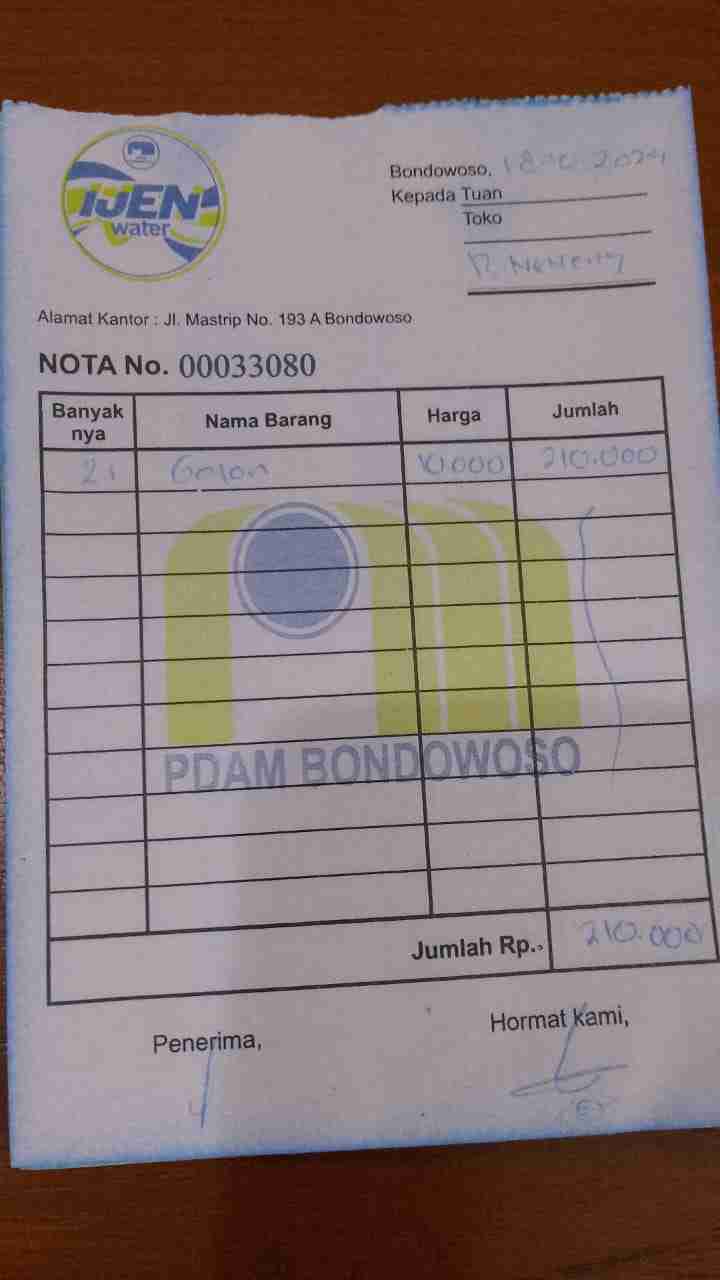 IJEN
water
Bondowoso, 18-10-2024
Kepada Tuan
Toko
Alamat Kantor : Jl. Mastrip No. 193 A Bondowoso
NOTA No. 00033080
Banyak nya Nama Barang Harga Jumlah
21 Galon 10.000 210.000
PDAM BONDOWOSO
Jumlah Rp., 210.000
Penerima, Hormat kami,